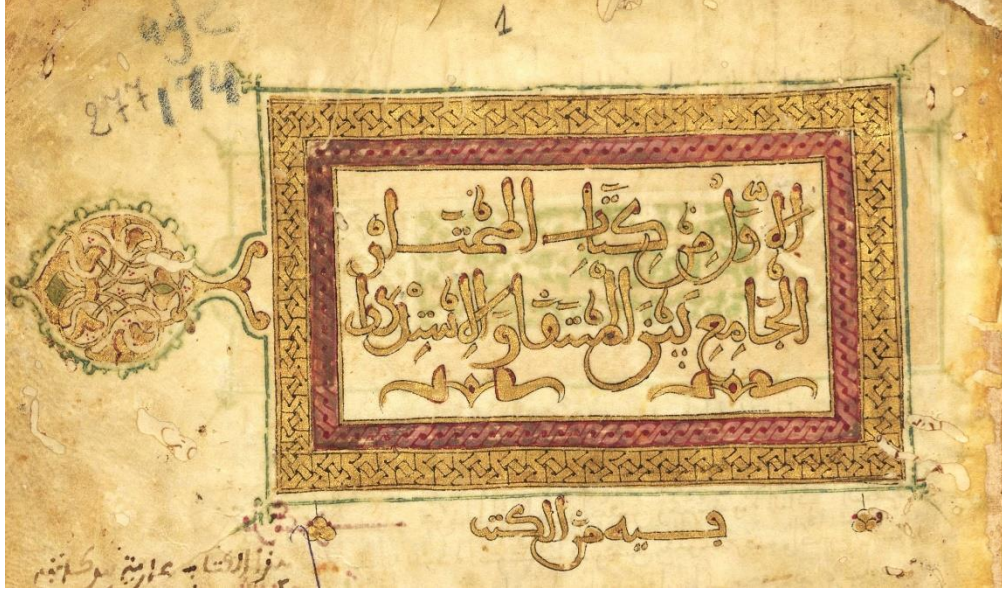 1
277 174
الاوَّل مِن كِتَاب المختار
الجَامِعِ بَيْنَ المُنتَقَا وَالاِسْتِذْكَار
فيه من الكتب